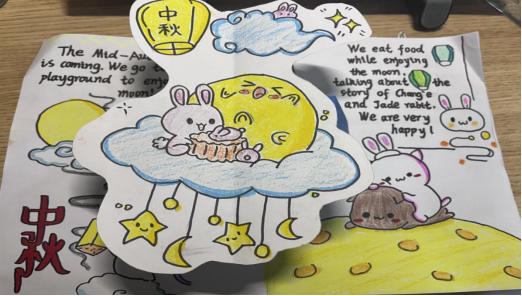 中
秋
The Mid-Au
is coming. We go t
playground to enjo
moon!
We eat food
while enjoying
the moon.
talking about the
story of Chang'e
and Jade rabit.
We are very
happy!
中
秋